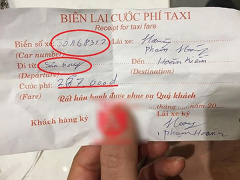 BIÊN LAI CƯỚC PHÍ TAXI
Receipt for taxi fare
Biển số xe: 30A68317 Lái xe:
(Car number) phạm
Đi từ: Sân bay Đến: Hoàn Kiếm
(Departure) (Destination)
Cước phí: 287.000đ
(Fare) Rất hân hạnh được phục vụ Quý khách
tháng năm 20
Khách hàng ký Lái xe ký
phạm Hoành